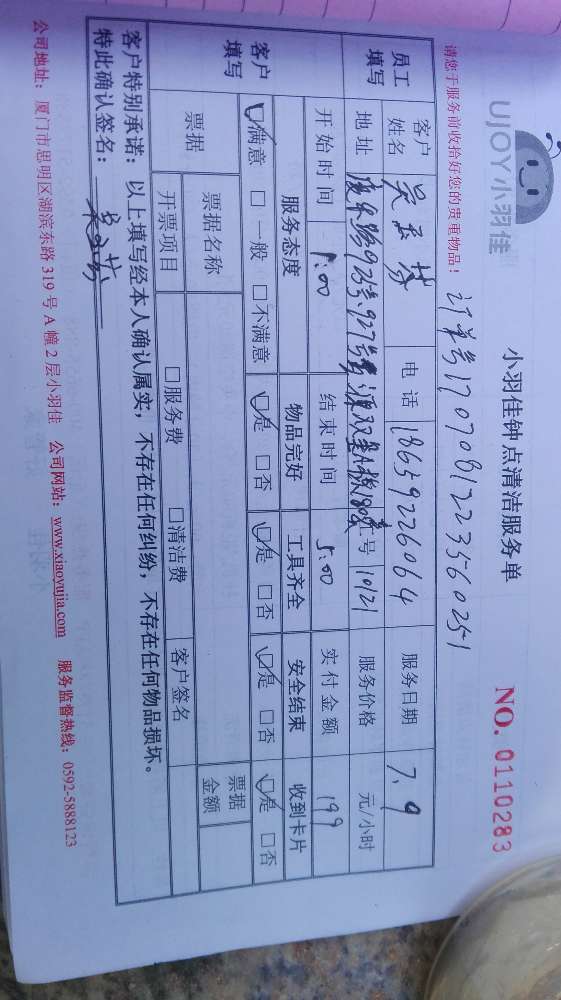 UJOY小羽佳
小羽佳钟点清洁服务单
NO. 0110283
请您于服务前收拾好您的贵重物品！
订单号17070812235602251
员工填写
客户姓名
电话 18659226064
服务日期 7.9
地址
工号 10121
服务价格 元/小时
开始时间 1:00
结束时间 5:00
实付金额 199
客户填写
服务态度 物品完好 工具齐全 安全结束 收到卡片
☑满意 □一般 □不满意 ☑是 □否 ☑是 □否 ☑是 □否 ☑是 □否
票据
票据名称
票据金额
开票项目 □服务费 □清洁费 客户签名
客户特别承诺：以上填写经本人确认属实，不存在任何纠纷，不存在任何物品损坏。
特此确认签名：
公司地址：厦门市思明区湖滨东路 319 号 A 幢 2 层小羽佳 公司网站：www.xiaoyujia.com 服务监督热线：0592-5888123